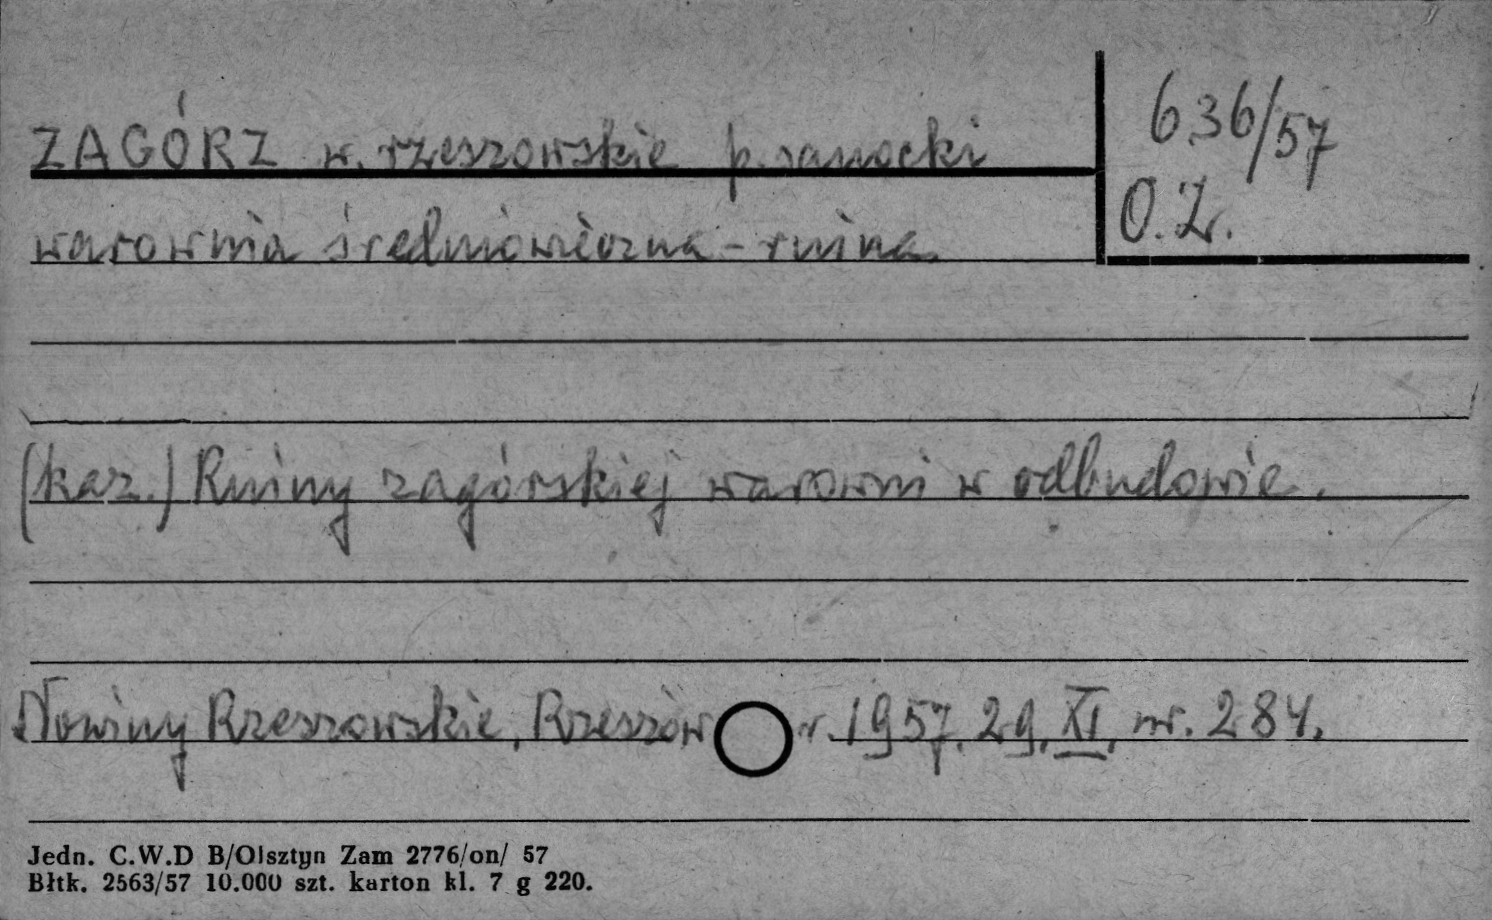 ZAGÓRZ w. rzeszowskie p. sanocki
636/57
O.Z.
warownia średniowieczna - ruina.
(kaz.) Ruiny zagórskiej warowni w odbudowie.
Nowiny Rzeszowskie, Rzeszów r. 1957. 29. XI. nr. 284.
Jedn. C.W.D B/Olsztyn Zam 2776/on/ 57
Błtk. 2563/57 10.000 szt. karton kl. 7 g 220.